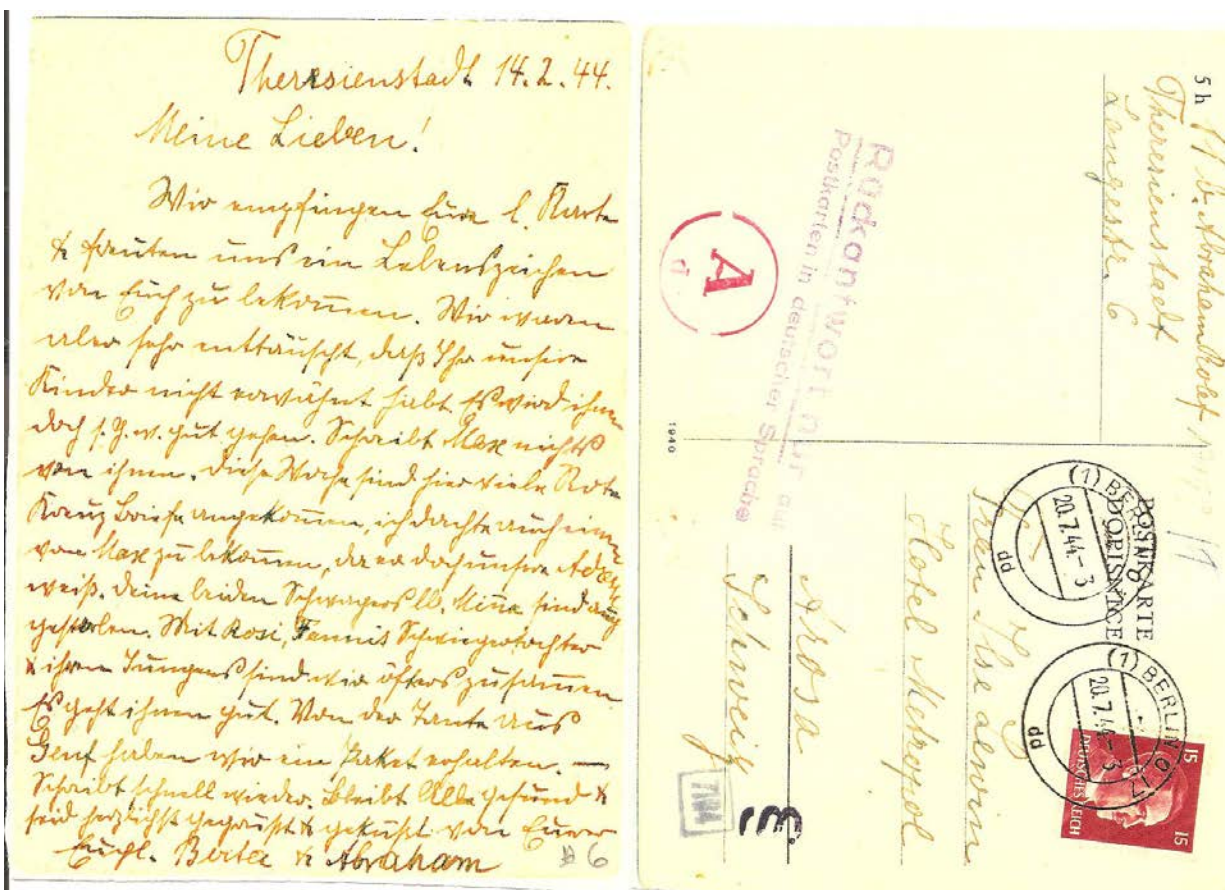 Theresienstadt 14.2.44.
Meine Lieben!
Wir empfingen Eure l. Karte
& freuten uns ein Lebenszeichen
von Euch zu bekommen. Wir waren
aber sehr enttäuscht, daß Ihr unsere
Kinder nicht erwähnt habt. Es wird ihnen
doch s. G. w. gut gehen. Schreibt Max nichts
von ihnen. Diese Woche sind hier viele Rote
Kreuz Briefe angekommen, ich dachte auch einen
von Max zu bekommen, da er doch unsere Adresse
weiß. Deine beiden Schwagers lb. Mina sind auch
gestorben. Mit Rosi, Fannis Schwiegertochter
& ihren Jungens sind wir öfters zusammen
Es geht ihnen gut. Von der Tante aus
Genf haben wir ein Paket erhalten. —
Schreibt schnell wieder. Bleibt Alle gesund &
seid herzlichst gegrüßt & geküßt von Eurer
Euchl. Bertel & Abraham
#6
5 h
Abraham
Theresienstadt
Langestr. 6
Rückantwort nur auf
Postkarten in deutscher Sprache
A
d
1940
POSTKARTE
DOPISNICE
(1) BERLIN
20.7.44.-3
dd
(1) BERLIN O 17
20.7.44.-3
dd
15
15
DEUTSCHES REICH
Frau Ilse
Hotel Metropol
Arosa
Schweiz